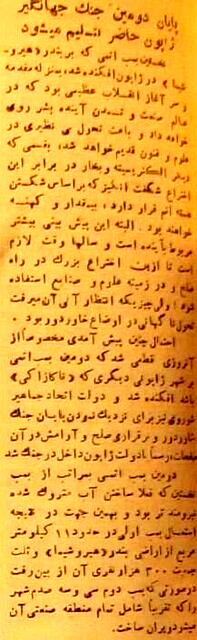 پایان دومین جنك جهانگیر
ژاپون حاضر تسلیم میشود
نخستین بمب اتمی که بر بندر «هیرو-
شیما» در ژاپون افکنده شد، بمنزله مقدمه
و سر آغاز انقلاب عظیمی بود که در
عالم صنعت و تمدن آینده بشر روی
خواهد داد و باعث تحول بی نظیری در
علوم و فنون قدیم خواهد شد، بقسمی که
نیروی الکتریسیته و بخار در برابر این
اختراع شگفت انگیز که بر اساس شکستن
هسته اتم قرار دارد، بیمقدار و کهنه
خواهند بود. البته این پیش بینی بیشتر
مربوط بآینده است و سالها وقت لازم
است تا از این اختراع بزرك در راه
صلح و در زمینه علوم و صنایع استفاده
شود؛ ولی چیزیکه انتظار آنی آن میرفت
تحول ناگهانی در اوضاع خاور دور بود.
احتمال چنین پیش آمدی مخصوصاً از
آنروزی قطعی شد که دومین بمب اتمی
بر شهر ژاپونی دیگری که «ناکازاکی»
باشد افکنده شد و دولت اتحاد جماهیر
شوروی نیز برای نزدیك نمودن پایان جنك
خاور دور و برقراری صلح و آرامش در آن
صفحات، رسماً با دولت ژاپون داخل در جنك شد
دومین بمب اتمی بمراتب از بمب
نخستین که فعلا ساختن آن متروك شده
نیرومند تر بود و بهمین جهت در نتیجه
استعمال بمب اولی در حدود ۱۱ کیلومتر
مربع از اراضی بندر «هیروشیما» و ثلث
جمعیت ۳۰۰ هزار نفری آن از بین رفت
در صورتی که بمب دوم سی و سه صدم شهر
را که تقریباً شامل تمام منطقه صنعتی آن
میشود ویران ساخت.